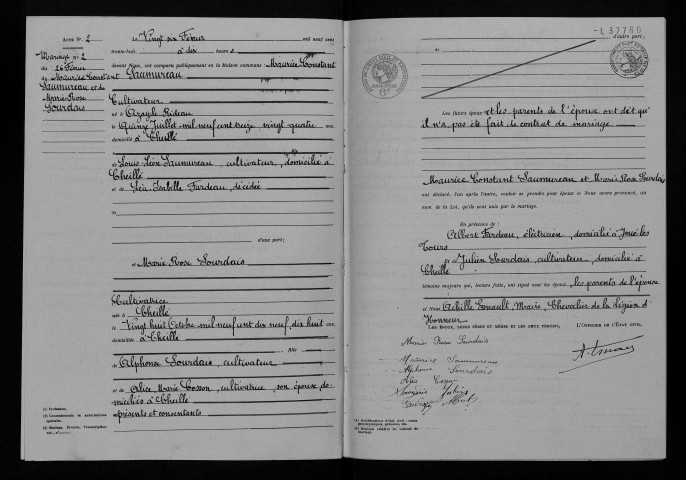 ACTE N° 2
Mariage n° 2
du 26 Février
de Maurice Constant
Saumureau et de
Marie Rose
Sourdais
Le Vingt six Février mil neuf cent
trente-huit, à dix heures
devant Nous, ont comparu publiquement en la Maison commune : Maurice Constant
Saumureau
Cultivateur
né à Azay le Rideau
le Quinze Juillet mil neuf cent treize, vingt quatre ans,
domicilié à Cheillé
de Louis Léon Saumureau, cultivateur, domicilié à
Cheillé
et de Léa Isabelle Fardeau, décédée
de
d'une part ;
et Marie Rose Sourdais
Cultivatrice
née à Cheillé
le Vingt huit Octobre mil neuf cent dix neuf, dix huit ans,
domiciliée à Cheillé
fille
de Alphonse Sourdais, cultivateur
et de Alice Marie Cosson, cultivatrice, son épouse do-
miciliés à Cheillé
présents et consentants
(1) Profession.
L 37760
d'autre part ;
de
Les futurs époux et les parents de l'épouse ont dét qu'
il n'a pas été fait de contrat de mariage
Maurice Constant Saumureau et Marie Rose Sourdais
ont déclaré, l'un après l'autre, vouloir se prendre pour époux et Nous avons prononcé, au
nom de la Loi, qu'ils sont unis par le mariage.
En présence de
Albert Fardeau, électricien, domicilié à Joué les
Tours
et Julien Sourdais, cultivateur, domicilié à
Cheillé
témoins majeurs qui, lecture faite, ont signé avec les époux, les parents de l'épouse
et Nous Achille Maire, Chevalier de la Légion d'
Honneur
LES ÉPOUX, LEURS PÈRES ET MÈRES ET LES DEUX TÉMOINS, L'OFFICIER DE L'ÉTAT CIVIL,
Marie Rose Sourdais
Maurice Saumureau
Alphonse Sourdais